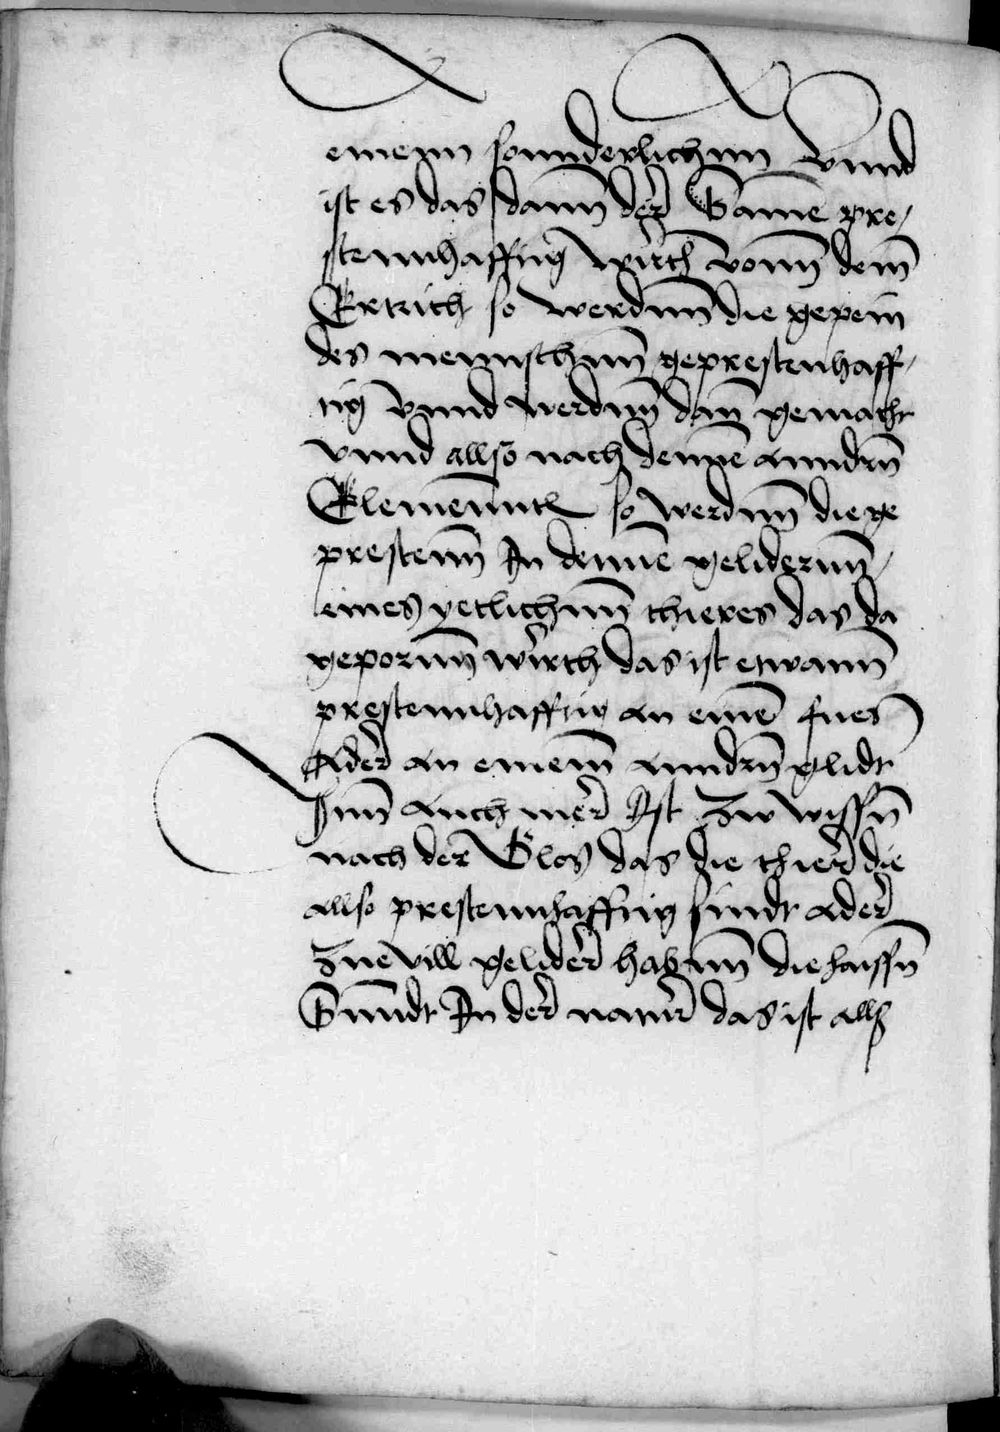 einenn sonnderlichnn vnnd
ist es das dann der Samē pre⸗
stennhafftig wirth vonn dem
Ertrich so werdnn die gepein
des mennschnn geprestenhaff⸗
tig vnnd werdnn dan gemacht
vnnd allso nach denne anndrn
Elemennth so werdnn die ge
prestenn In denne gelidernn⸗
eines yetlichnn thieres das da
geporun wirth das ist etwann
prestennhafftig an eine fues
Ader an einem anndrn glidt
Inn auch mer Ist zw wissn
nach der Glos das die thier die
allso prestennhafftig sindt ader
zue vill gelider habnn die haissn
Sunndt In der natur das ist alls